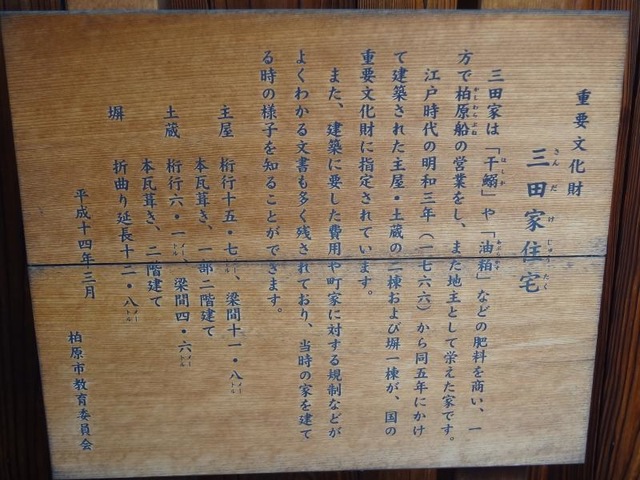 重要文化財
三田家住宅
さんだけじゅうたく
三田家は「干鰯」や「油粕」などの肥料を商い、一
方で柏原船の営業をし、また地主として栄えた家です。
江戸時代の明和三年（一七六六）から同五年にかけ
て建築された主屋・土蔵の二棟および塀一棟が、国の
重要文化財に指定されています。
また、建築に要した費用や町家に対する規制などが
よくわかる文書も多く残されており、当時の家を建て
る時の様子を知ることができます。
主屋 桁行十五・七メートル、梁間十一・八メートル
本瓦葺き、一部二階建て
土蔵 桁行六・一メートル、梁間四・六メートル
本瓦葺き、二階建て
塀 折曲り延長十二・八メートル
平成十四年三月
柏原市教育委員会